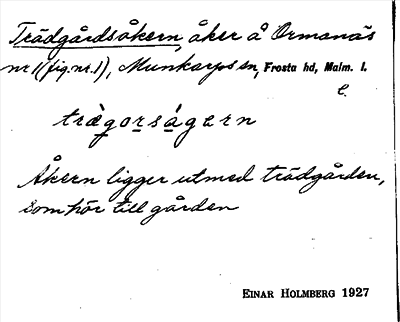 Trädgårdsåkern, åker å Ormanäs
nr 1 (fig. nr. 1), Munkarps sn, Frosta hd, Malm. l.
trægorságern
Åkern ligger utmed trädgården,
som hör till gården
EINAR HOLMBERG 1927